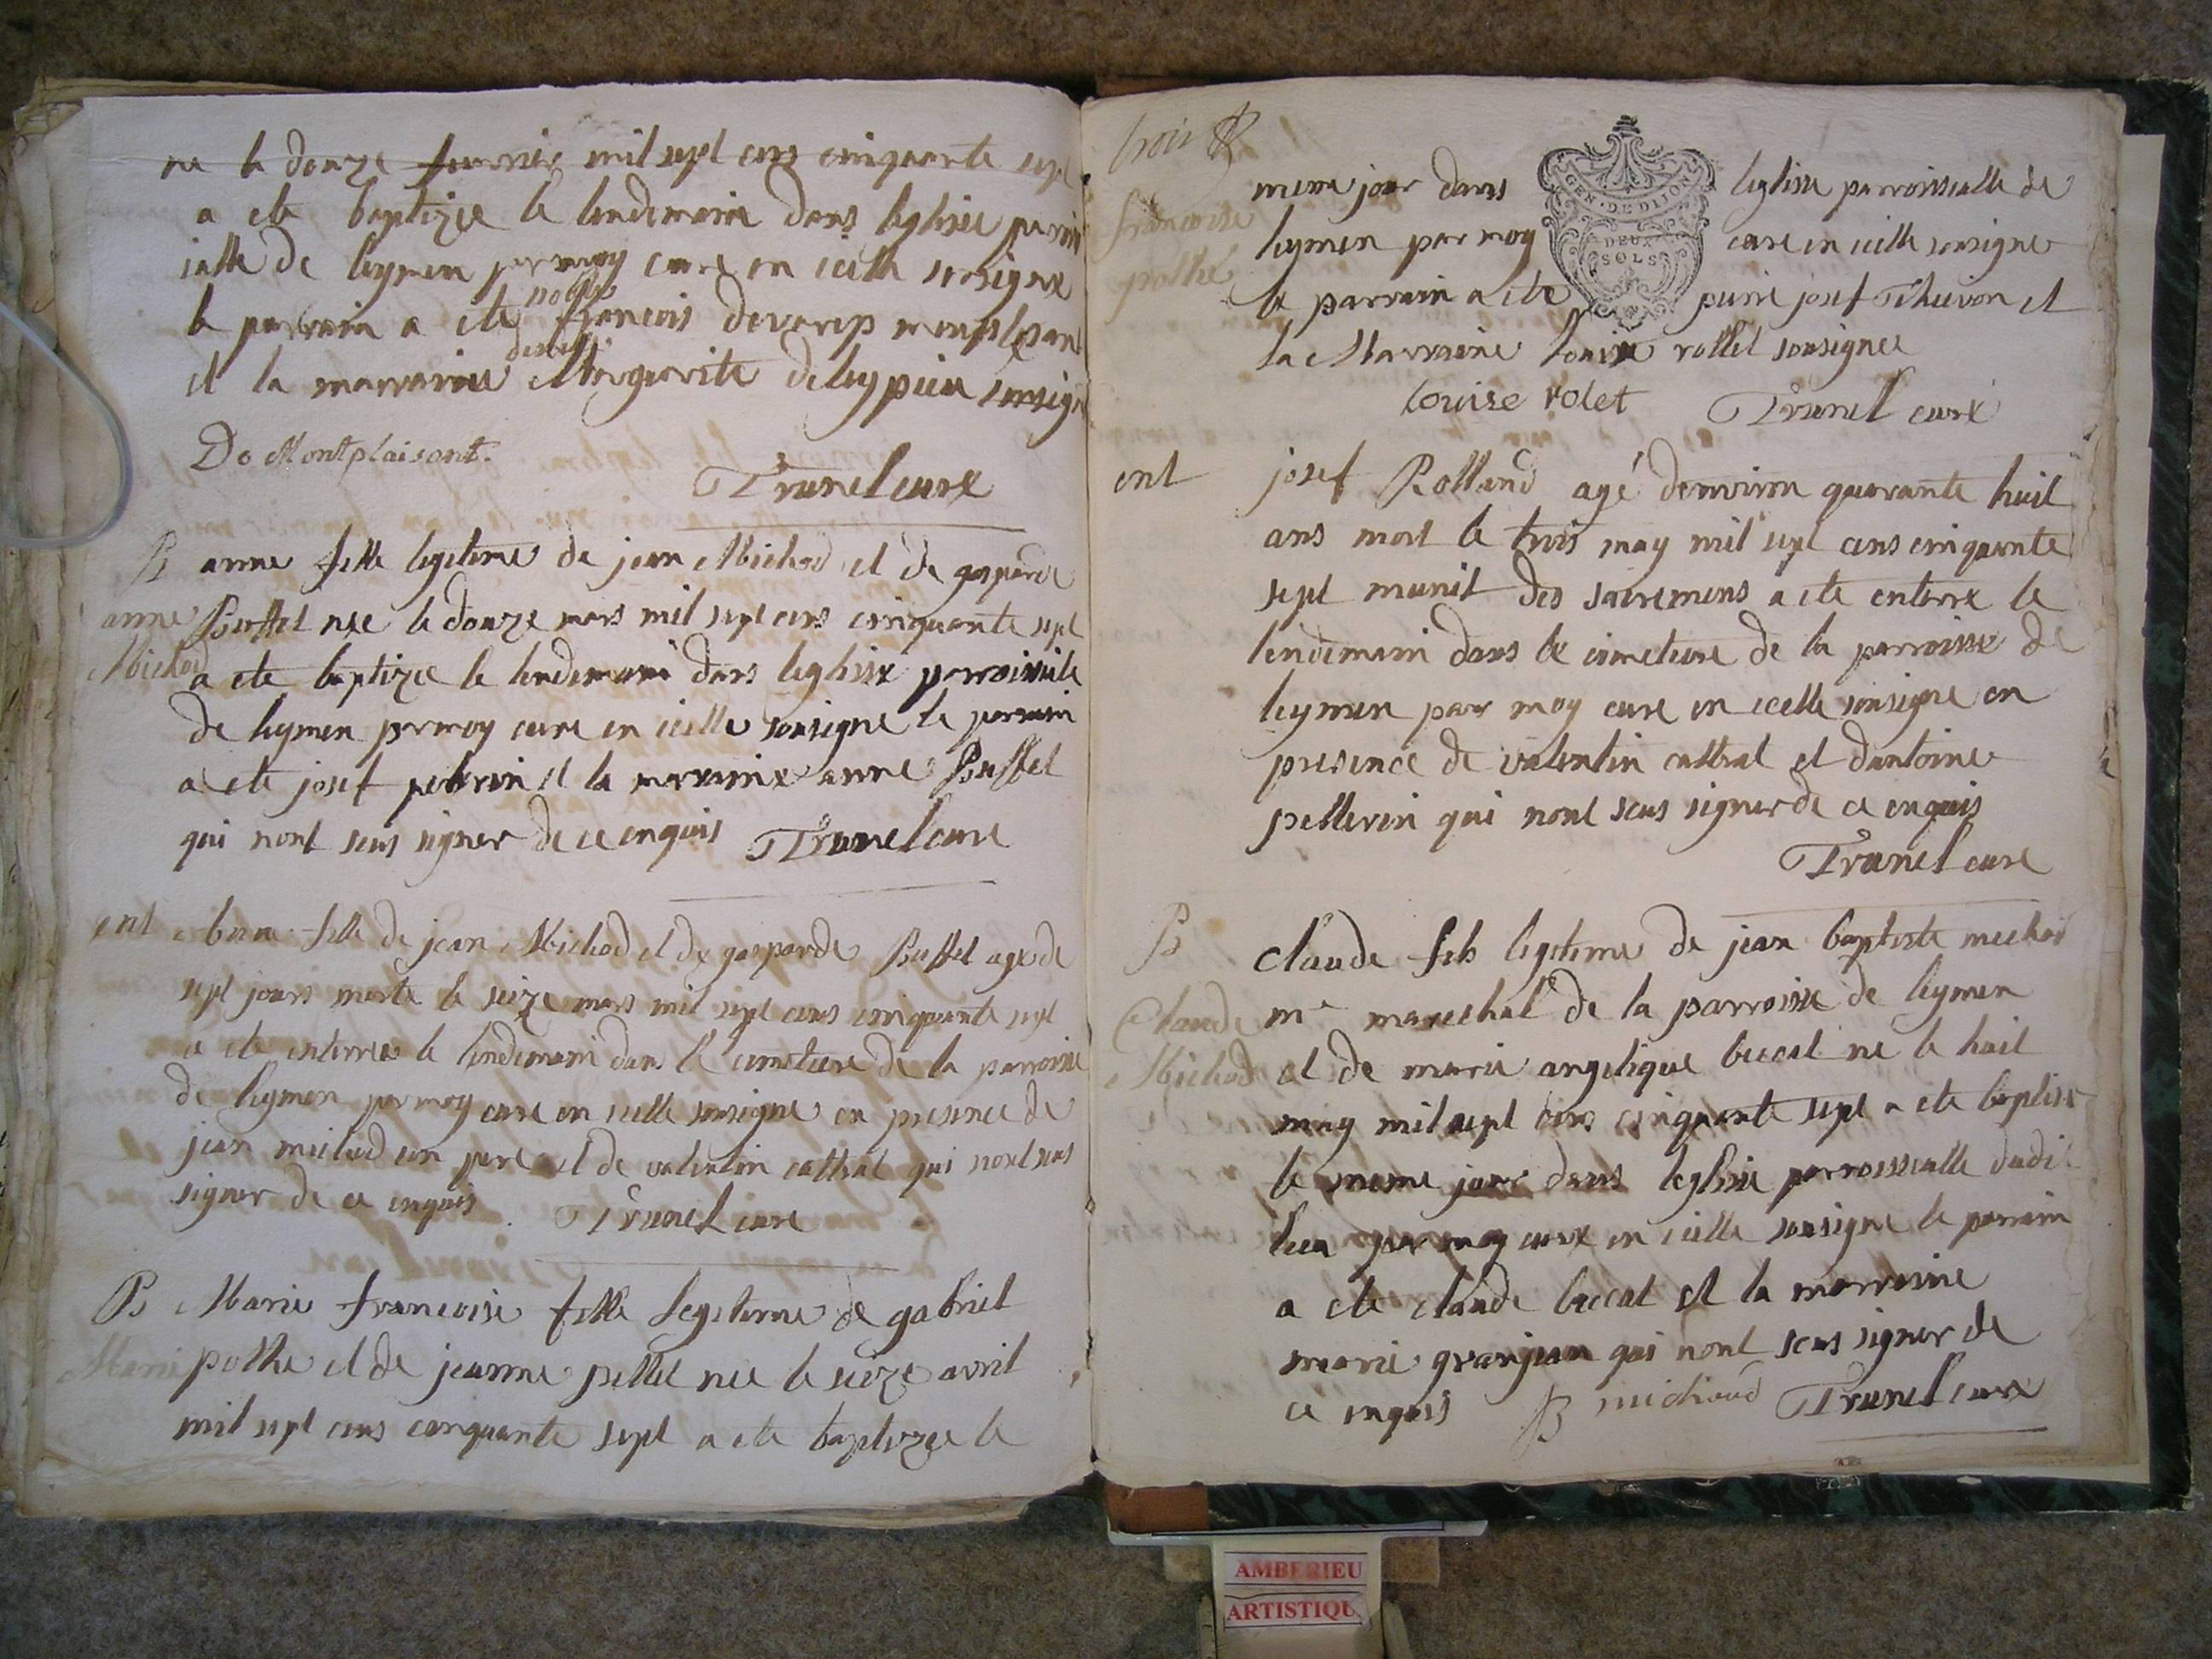 ne le douze fevrier mil sept cens cinquante sept
a ete baptizee le lendemain dans leglise parroi
ialle de leymen par moy cure en icelle sousigne
noble
le parrain a ete francois devarep montplesant
demlle
et la marraine Marguerite deleypieu sousign
De Montplaisant.
Trunel cure
B anne fille legitime de jean Michod et de gasparde
anne Buffet nee le douze mars mil sept cens cinquante sept
Michod a ete baptizee le lendemain dans leglise parroissiale
de leymen par moy cure en icelle sousigne le parrain
a ete josef pellerin et la marraine anne Buffet
qui nont scus signer de ce enquis Trunel cure
ent anne fille de jean Michod et de gasparde Buffet agee de
sept jours morte le seize mars mil sept cens cinquante sept
a ete enterree le lendemain dans le cimetiere de la parroisse
de leymen par moy cure en icelle sousigne en presence de
jean michod son pere et de valentin cattral qui nont scus
signer de ce enquis Trunel cure
B Marie francoise fille legitime de gabriel
Marie pothe et de jeanne pellet nee le seize avril
mil sept cens cinquante sept a ete baptizee le
trois
GEN. DE DIJON
DEUX
SOLS
meme jour dans leglise parroissialle de
francoise
leymen par moy cure en icelle sousigne
pothe
le parrain a ete pierre josef Thevon et
la Marraine louise rollet sousignee
louise rolet Trunel curé
ent josef Rolland agé denviron quarante huit
ans mort le trois may mil sept cens cinquante
sept munit des sacremens a ete enterre le
lendemain dans le cimetiere de la parroisse de
leymen par moy cure en icelle sousigne en
presence de valentin cattral et dantoine
pellerin qui nont scus signer de ce enquis
Trunel cure
B claude fils legitime de jean baptiste michod
Claude mre marechal de la parroisse de leymen
Michod et de marie angelique beccat ne le huit
may mil sept cens cinquante sept a ete baptise
le meme jour dans leglise parroissialle dudit
lieu par moy cure en icelle sousigne le parrain
a ete claude beccat et la marraine
marie granjean qui nont scus signer de
ce enquis JB michaud Trunel cure
AMBERIEU
ARTISTIQU